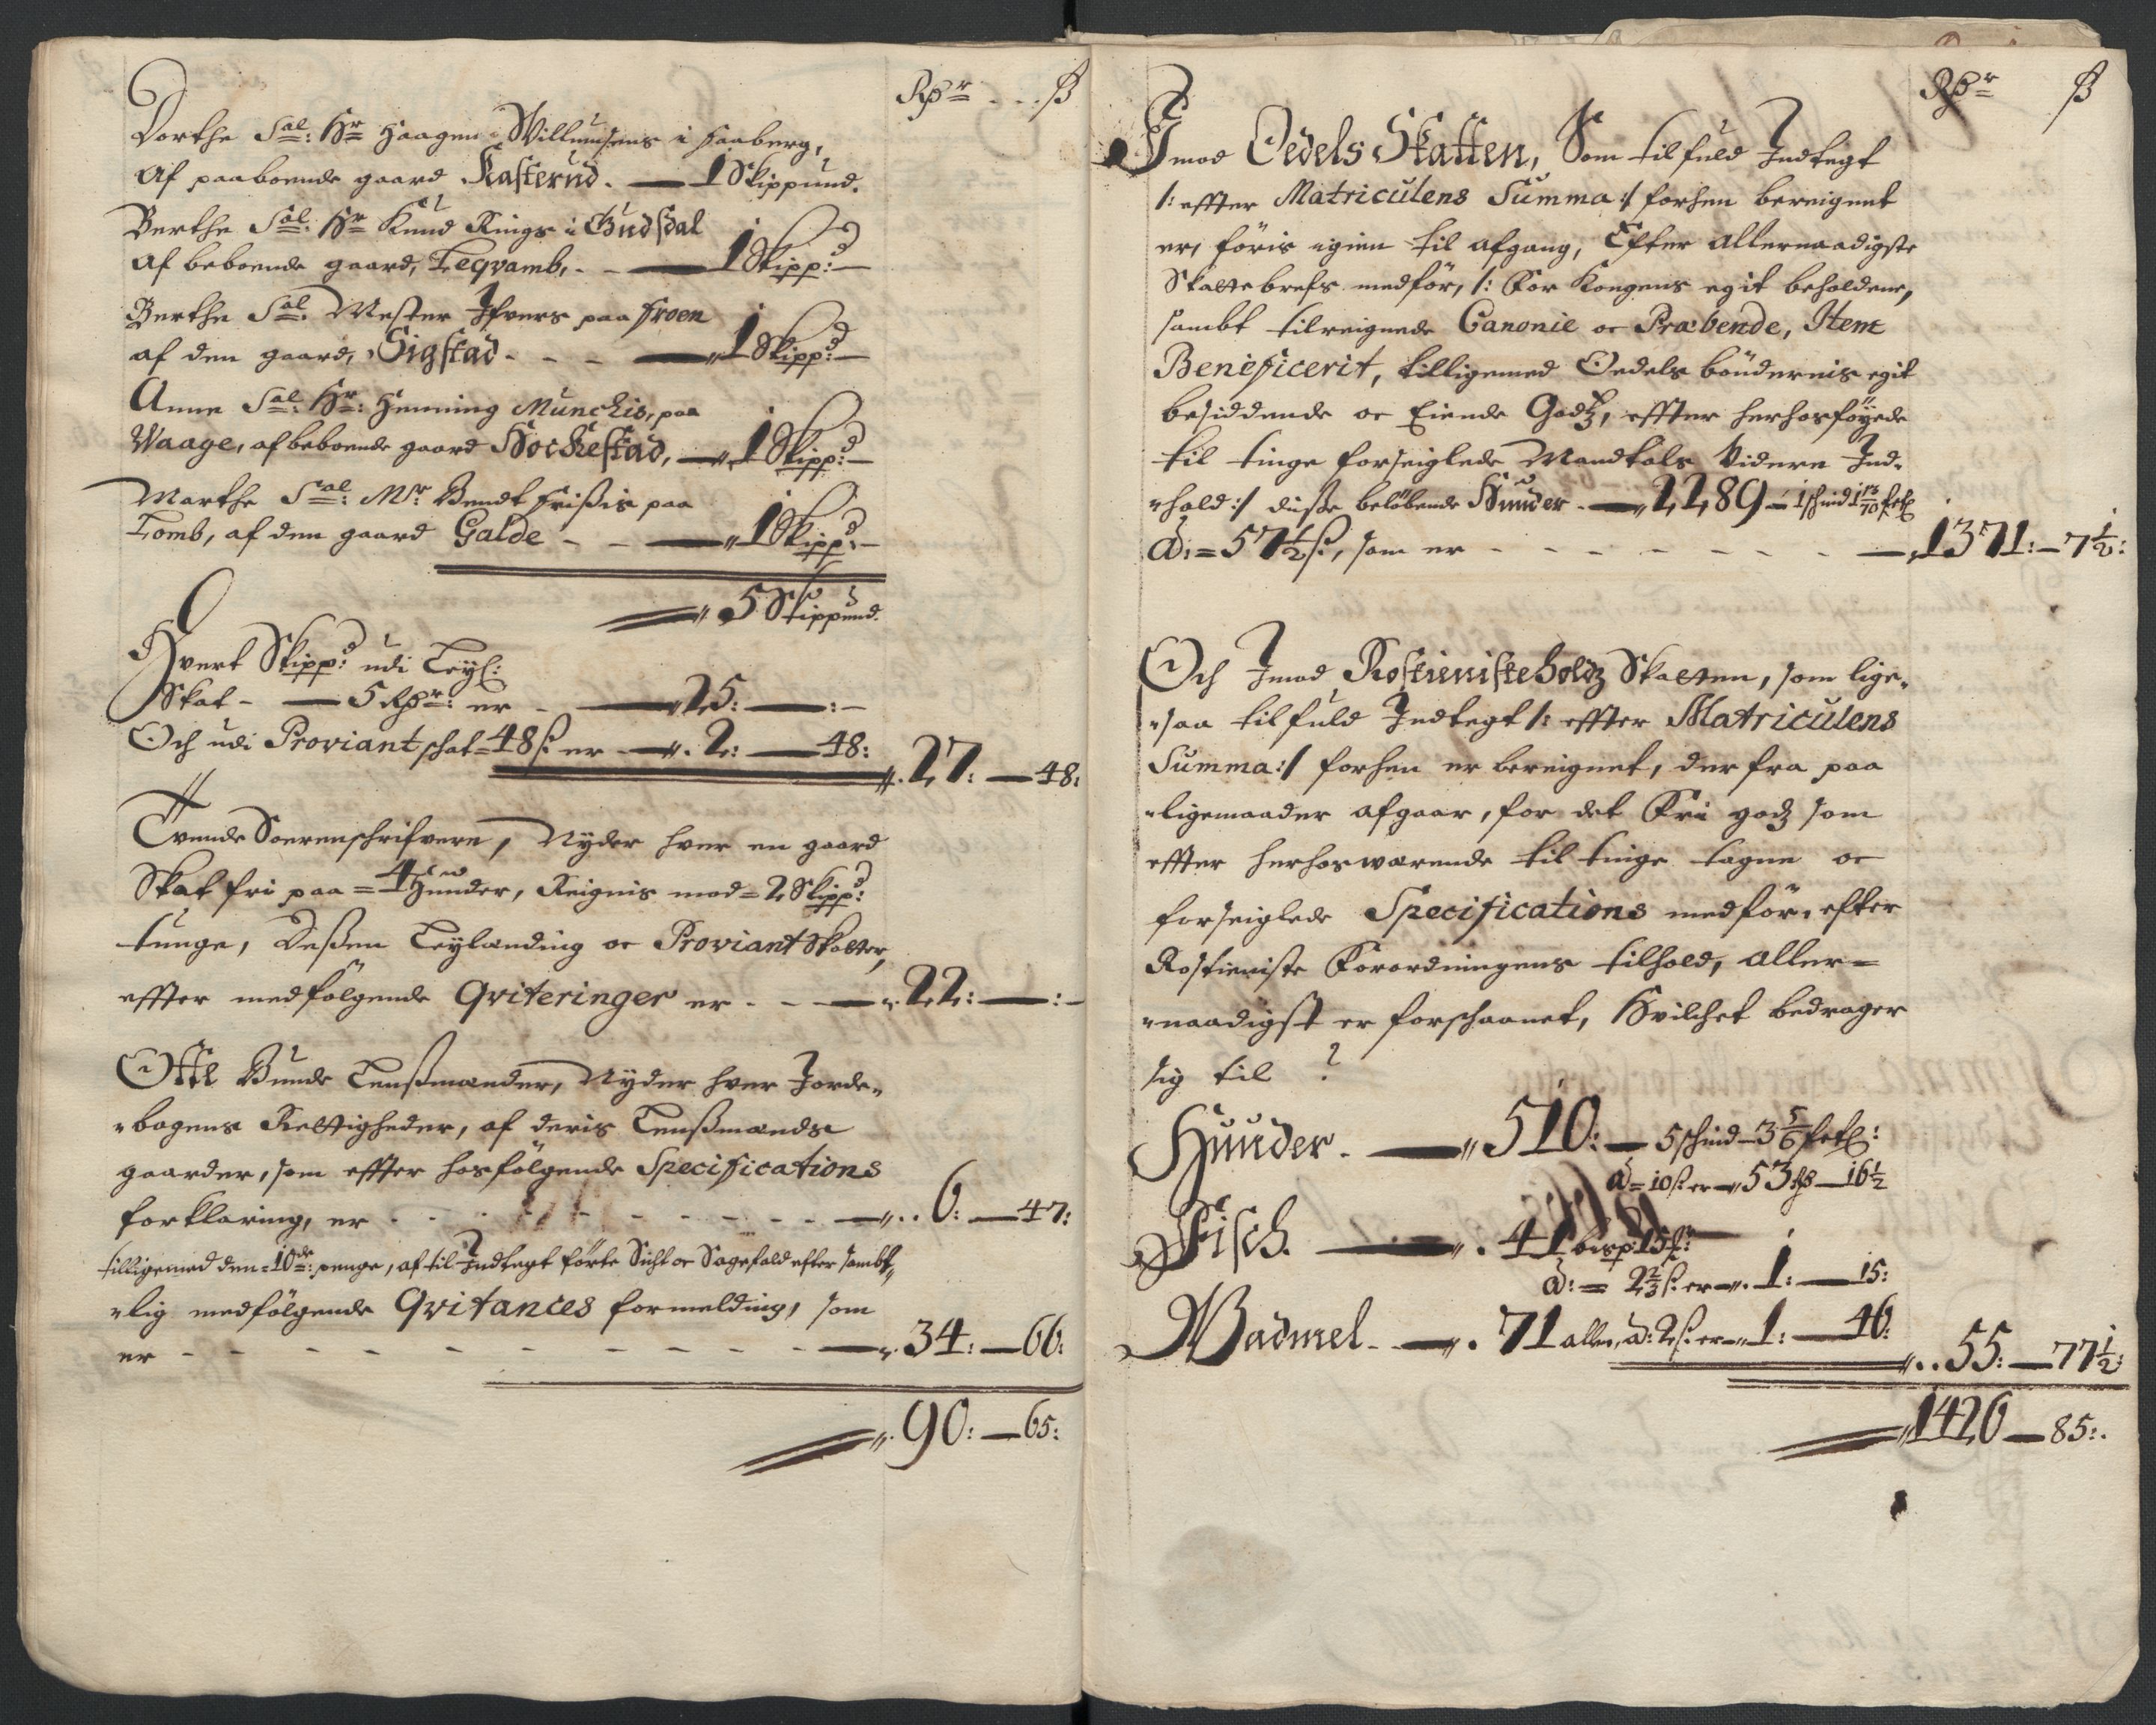 Rdr ß
Dorthe Sal: Hr Haagen Willumsens i Faaberg,
Af paaboende gaard Kasterud. — 1 Skippund.
Berthe Sal: Hr Knud Rings i Gudsdal
af beboende gaard, Leqvamb, — 1 Skippd:
Berthe Sal: Mester Ifvers paa Froen
af den gaard, Sigstad — 1 Skippd:
Anne Sal: Hr: Henning Munchis, paa
Waage, af beboende gaard Hochestad, — 1 Skippd:
Marthe Sal: Mr: Bendt Frißis paa
Lomb, af den gaard Galde — 1 Skippd:
5 Skippund.
Hvert Skippd: udi Leyl:
Skat — 5 Rdr: er — 25: — : —
Och udi Proviant schat = 48 ß er — 2: — 48: 27: — 48:
Tvende Sorenschrifvere, Nyder hver en gaard
Skat fri paa = 4 Hunder, Reignis mod = 2 Skippd:
tunge, Deßen Leylending oc Proviant Skatter,
effter medfølgende Qviteringer er — 22: — : —
Otte Bunde Lenßmænder, Nyder hver Jorde-
bogens Rettigheder, af deris Lenßmands
gaarder, som effter hosfølgende Specifications
forklaring, er — 6: — 47:
tilligemed den = 10de: penge, af til Indtegt førte Sicht oc Sagefald efter sambt-
lig medfølgende Qvitances formelding, som
er — 34: — 66:
90: — 65:
Rdr ß
Imod Oedels Skatten, Som til fuld Indtegt
/: effter Matriculens Summa :/ forhen bereignet
er, føris igien til afgang, Efter allernaadigste
Skattebrefs medfør, /: For Kongens egit beholdene,
sambt tilreignede Canonie oc Præbende, Item
Benificerit, tilligemed Oedels bøndernis egit
besiddende oc Eiende Godtz, effter herhosføyede
til tinge forseiglede Mandtals Videre Ind-
hold :/ disse beløbende Hunder — 2289 — 1 schind 1 13/70
à: = 57 1/2 ß, som er — 1371: — 7 1/2:
Och Imod Rostienisteholdz Skatten, som lige-
saa til fuld Indtegt /: effter Matriculens
Summa :/ forhen er bereignet, der fra paa
ligemaader afgaar, for det Fri godz som
effter herhosværende til tinge tagne oc
forseiglede Specifications medfør, efter
Rostieniste Forordningens tilhold, aller=
naadigst er forschaanet, Hvilchet bedrager
sig til
Hunder. — 510: — 5 schind — 3 5/6
à = 10 ß er — 53 Rdr — 16 1/2
Fisch. — 41 bisp:
à: = 2 2/3 ß er — 1: — 15:
Wadmel — 71 allen, à: 2 ß er — 1: — 46: 55: — 77 1/2:
1426 — 85: